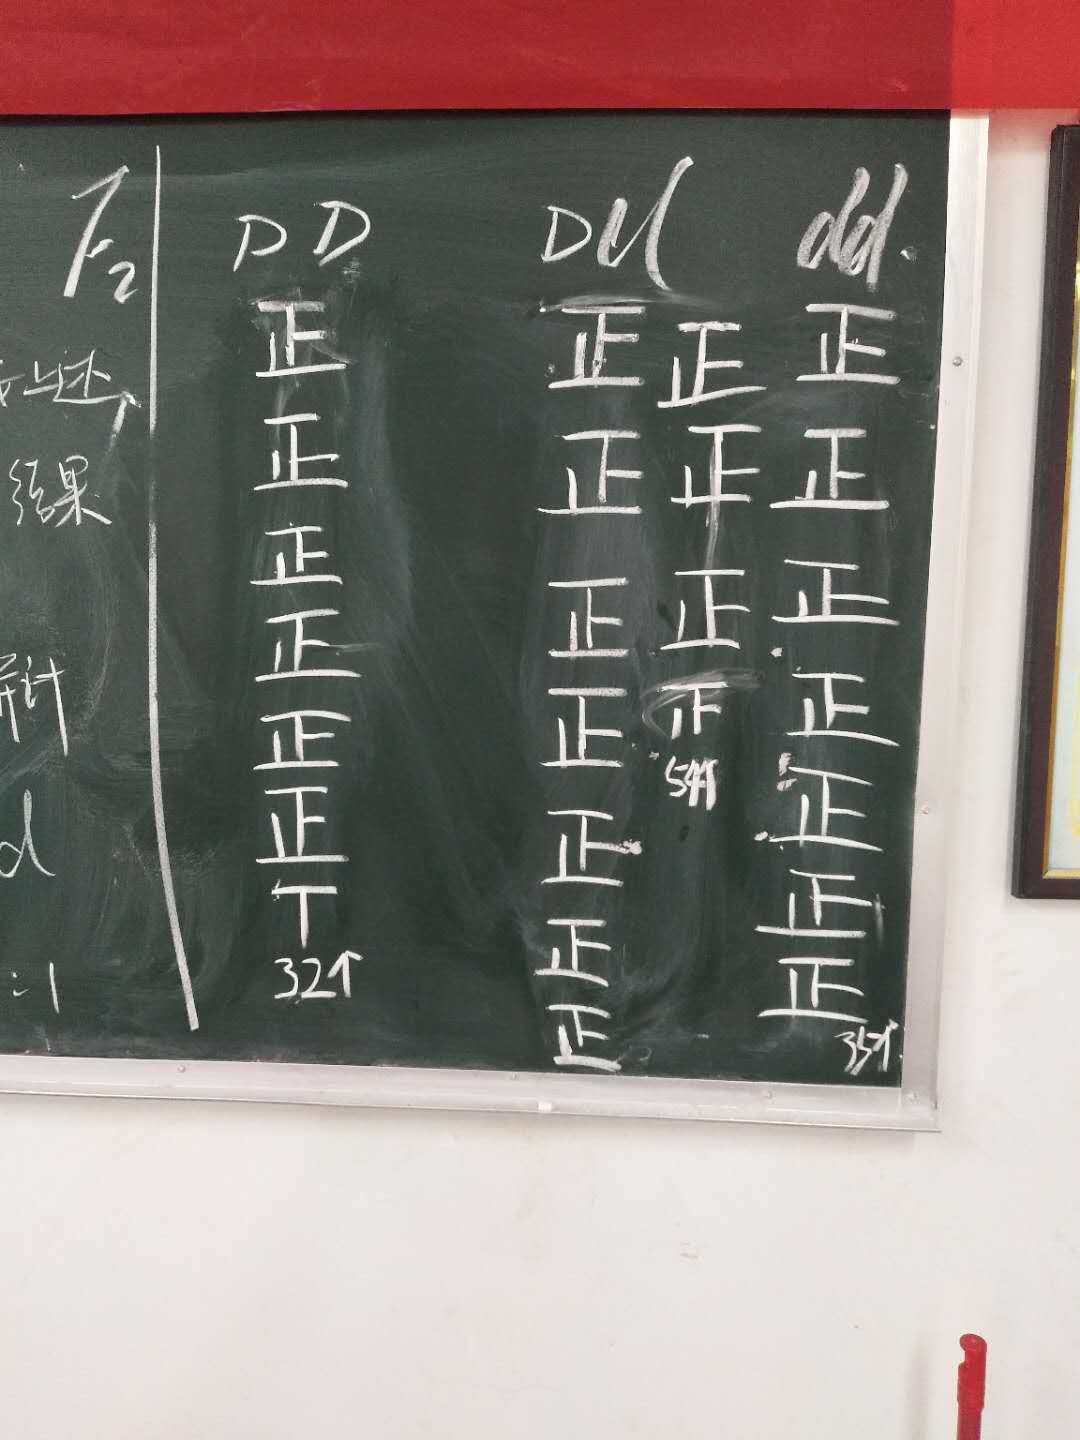 F₂ DD Dd dd
正 正 正 正
正 正 正 正
结果
正 正 正 正
正 正 正 正
正 正 正
正 正 正
丅 正 正
d
32个 54个 35个
:1